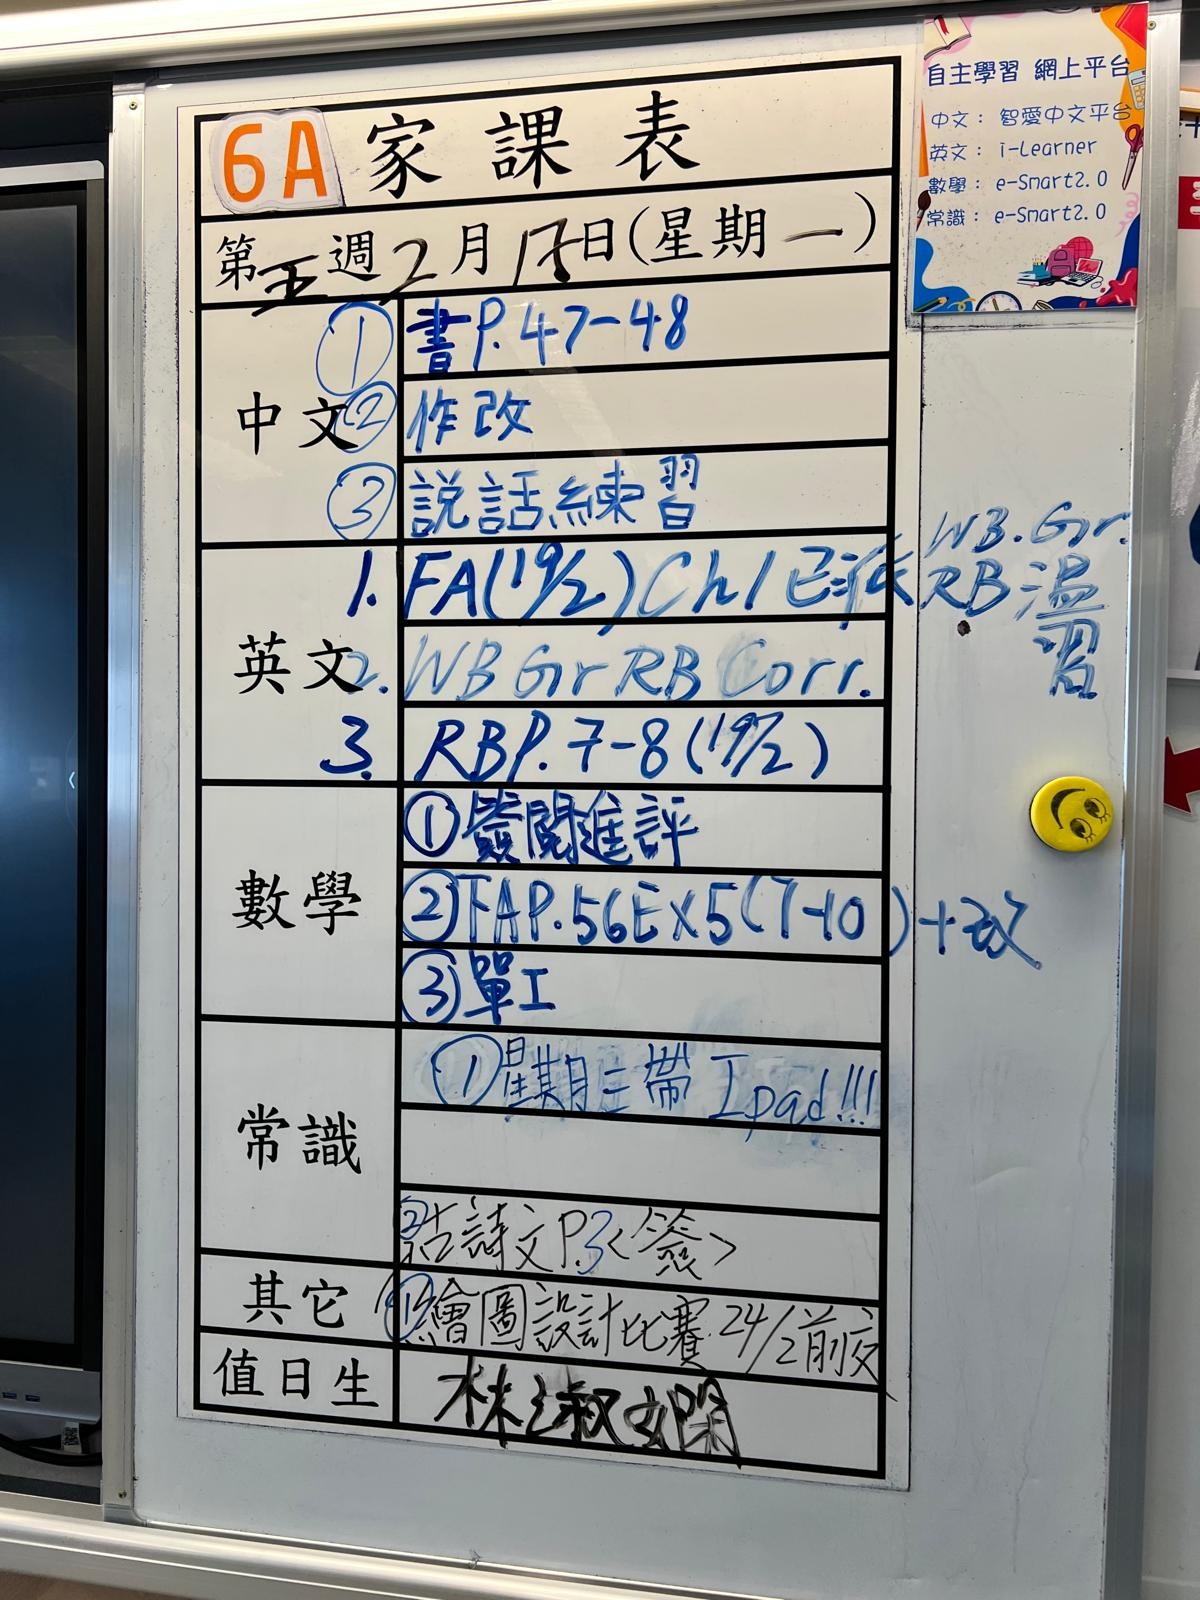 6A 家課表
第五週2月17日(星期一)
中文
① 書P.47-48
② 作改
③ 説話練習
英文
1. FA(19/2)Ch1已派 WB.Gr.
RB溫
習
2. WB Gr RB Corr.
3. RBP.7-8(19/2)
數學
① 簽閱進評
② FAP.56EX5(7-10)+改
③ 單工
常識
① 星期三帶Ipad!!!
② 古詩文P.3<簽>
其它
① 繪圖設計比賽.24/2前交
值日生
林淑嫻
自主學習 網上平台
中文: 智愛中文平台
英文: i-Learner
數學: e-Smart2.0
常識: e-Smart2.0